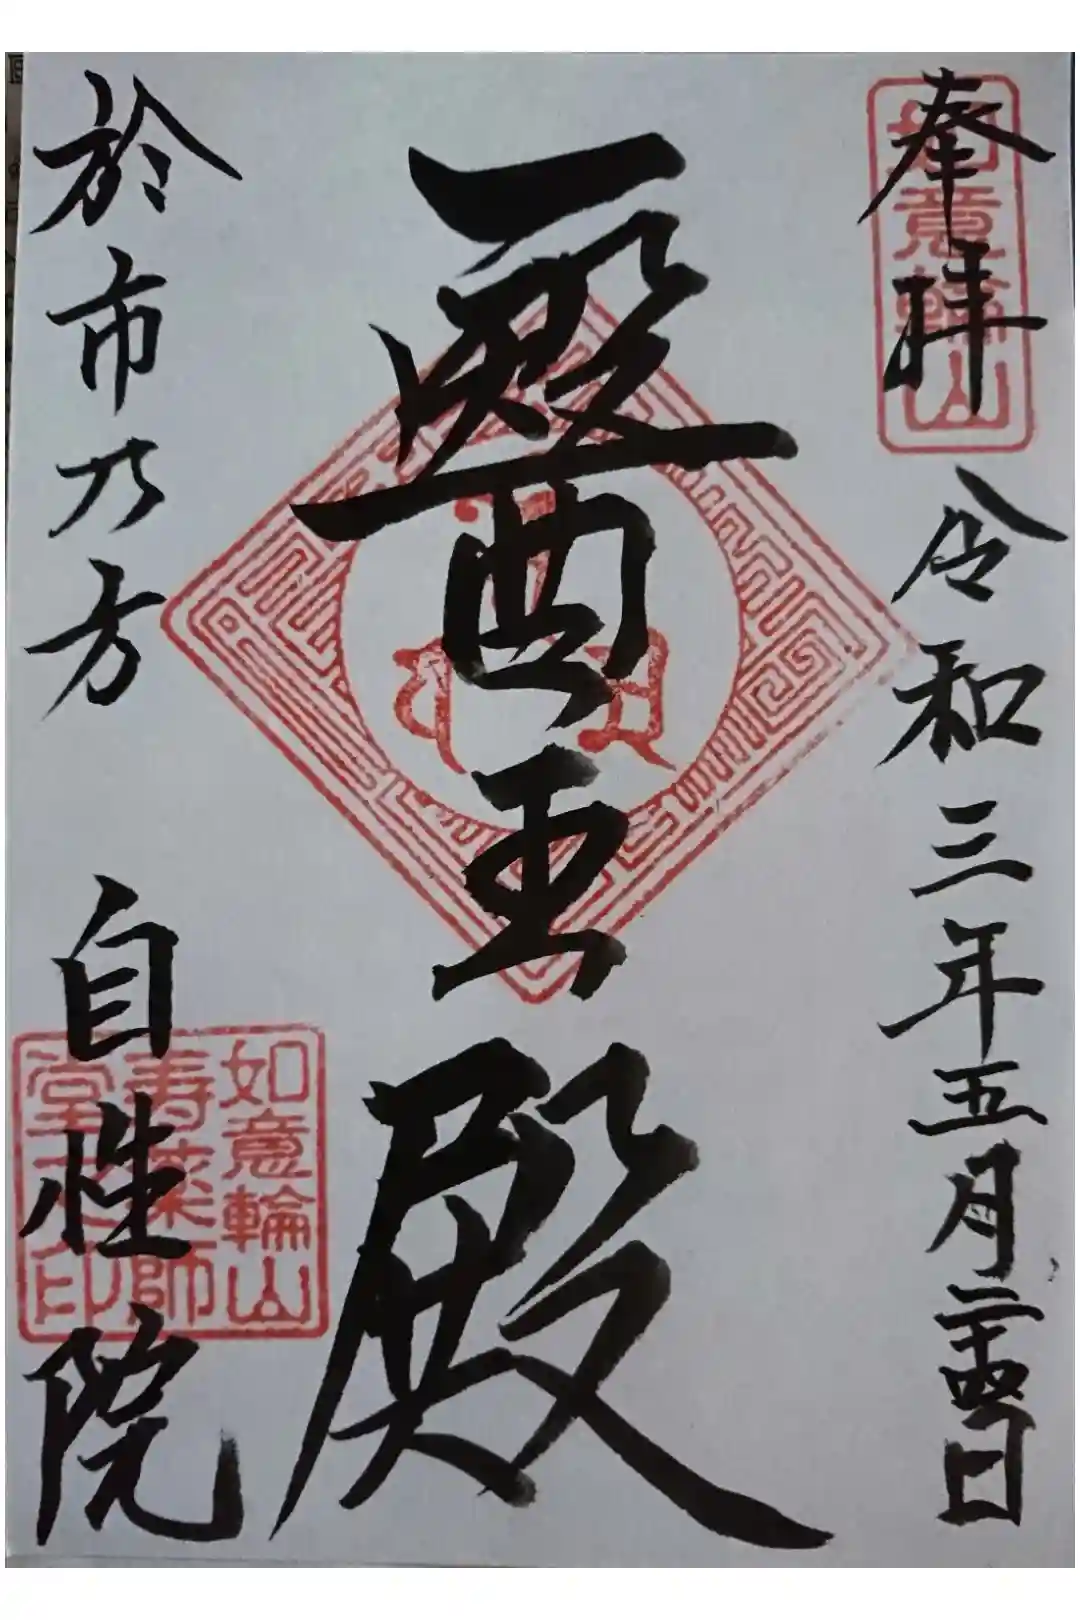 奉拝
令和三年五月二十四日
醫王殿
於市乃方 自性院
如意輪山
如意輪山
寿薬師
堂之印